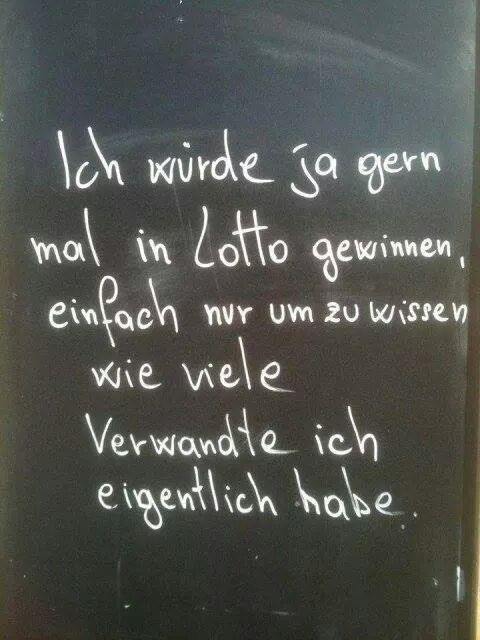 Ich würde ja gern
mal in Lotto gewinnen,
einfach nur um zu wissen
wie viele
Verwandte ich
eigentlich habe.